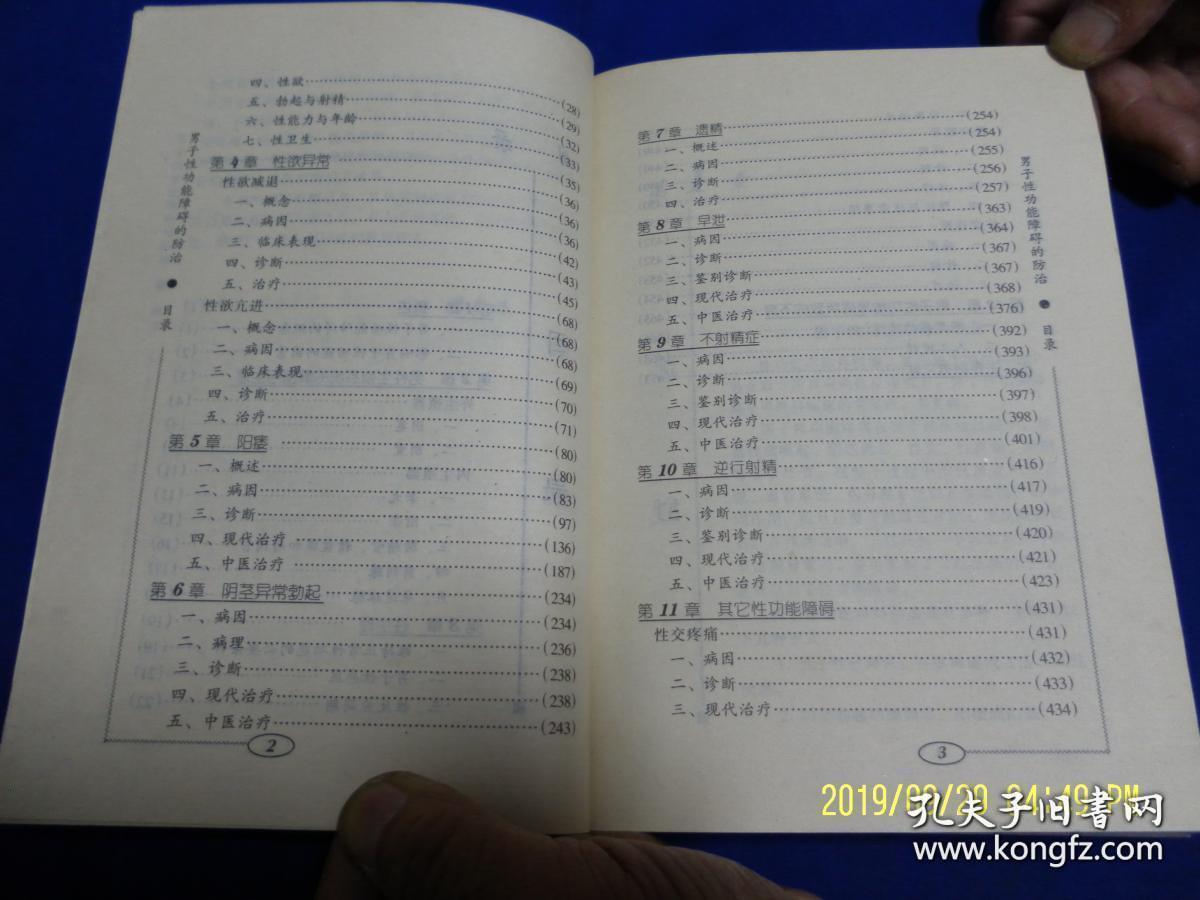 男子性功能障碍的防治 ● 目录
四、性欲……(28)
五、勃起与射精……(29)
六、性能力与年龄……(32)
七、性卫生……(33)
第4章 性欲异常……(35)
性欲减退……(36)
一、概念……(36)
二、病因……(36)
三、临床表现……(42)
四、诊断……(43)
五、治疗……(45)
性欲亢进……(68)
一、概念……(68)
二、病因……(68)
三、临床表现……(69)
四、诊断……(70)
五、治疗……(71)
第5章 阳痿……(80)
一、概述……(80)
二、病因……(83)
三、诊断……(97)
四、现代治疗……(136)
五、中医治疗……(187)
第6章 阴茎异常勃起……(234)
一、病因……(234)
二、病理……(236)
三、诊断……(238)
四、现代治疗……(238)
五、中医治疗……(243)
2
第7章 遗精……(254)
一、概述……(254)
二、病因……(255)
三、诊断……(256)
四、治疗……(257)
第8章 早泄……(363)
一、病因……(364)
二、诊断……(367)
三、鉴别诊断……(367)
四、现代治疗……(368)
五、中医治疗……(376)
第9章 不射精症……(392)
一、病因……(393)
二、诊断……(396)
三、鉴别诊断……(397)
四、现代治疗……(398)
五、中医治疗……(401)
第10章 逆行射精……(416)
一、病因……(417)
二、诊断……(419)
三、鉴别诊断……(420)
四、现代治疗……(421)
五、中医治疗……(423)
第11章 其它性功能障碍……(431)
性交疼痛……(431)
一、病因……(432)
二、诊断……(433)
三、现代治疗……(434)
3
男子性功能障碍的防治 ● 目录
PM
孔夫子旧书网
www.kongfz.com